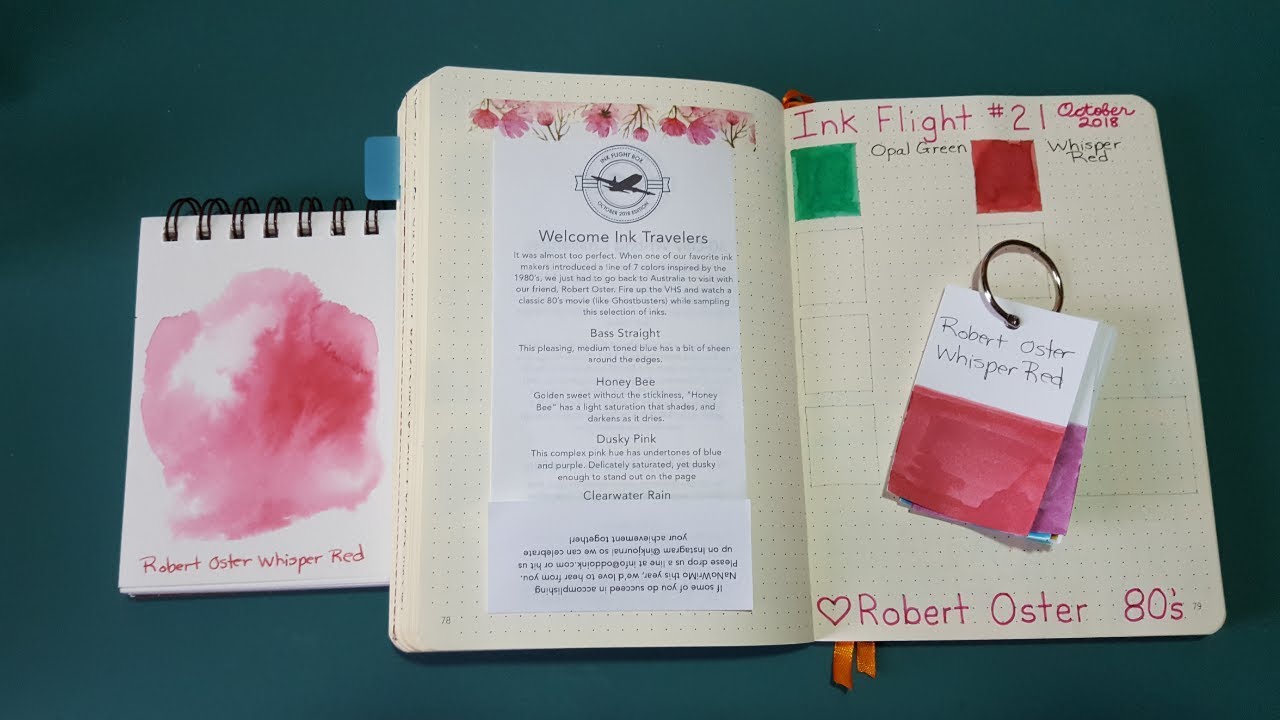 Robert Oster Whisper Red
INK FLIGHT BOX
OCTOBER 2018 EDITION
Welcome Ink Travelers
It was almost too perfect. When one of our favorite ink
makers introduced a line of 7 colors inspired by the
1980's, we just had to go back to Australia to visit with
our friend, Robert Oster. Fire up the VHS and watch a
classic 80's movie (like Ghostbusters) while sampling
this selection of inks.
Bass Straight
This pleasing, medium toned blue has a bit of sheen
around the edges.
Honey Bee
Golden sweet without the stickiness, "Honey
Bee" has a light saturation that shades, and
darkens as it dries.
Dusky Pink
This complex pink hue has undertones of blue
and purple. Delicately saturated, yet dusky
enough to stand out on the page
Clearwater Rain
If some of you do succeed in accomplishing
NaNoWriMo this year, we'd love to hear from you.
Please drop us a line at info@oddoink.com or hit us
up on Instagram @inkjournal so we can celebrate
your achievement together!
78
Ink Flight #21 October
2018
Opal Green
Whisper
Red
Robert Oster
Whisper Red
♡Robert Oster 80's
79